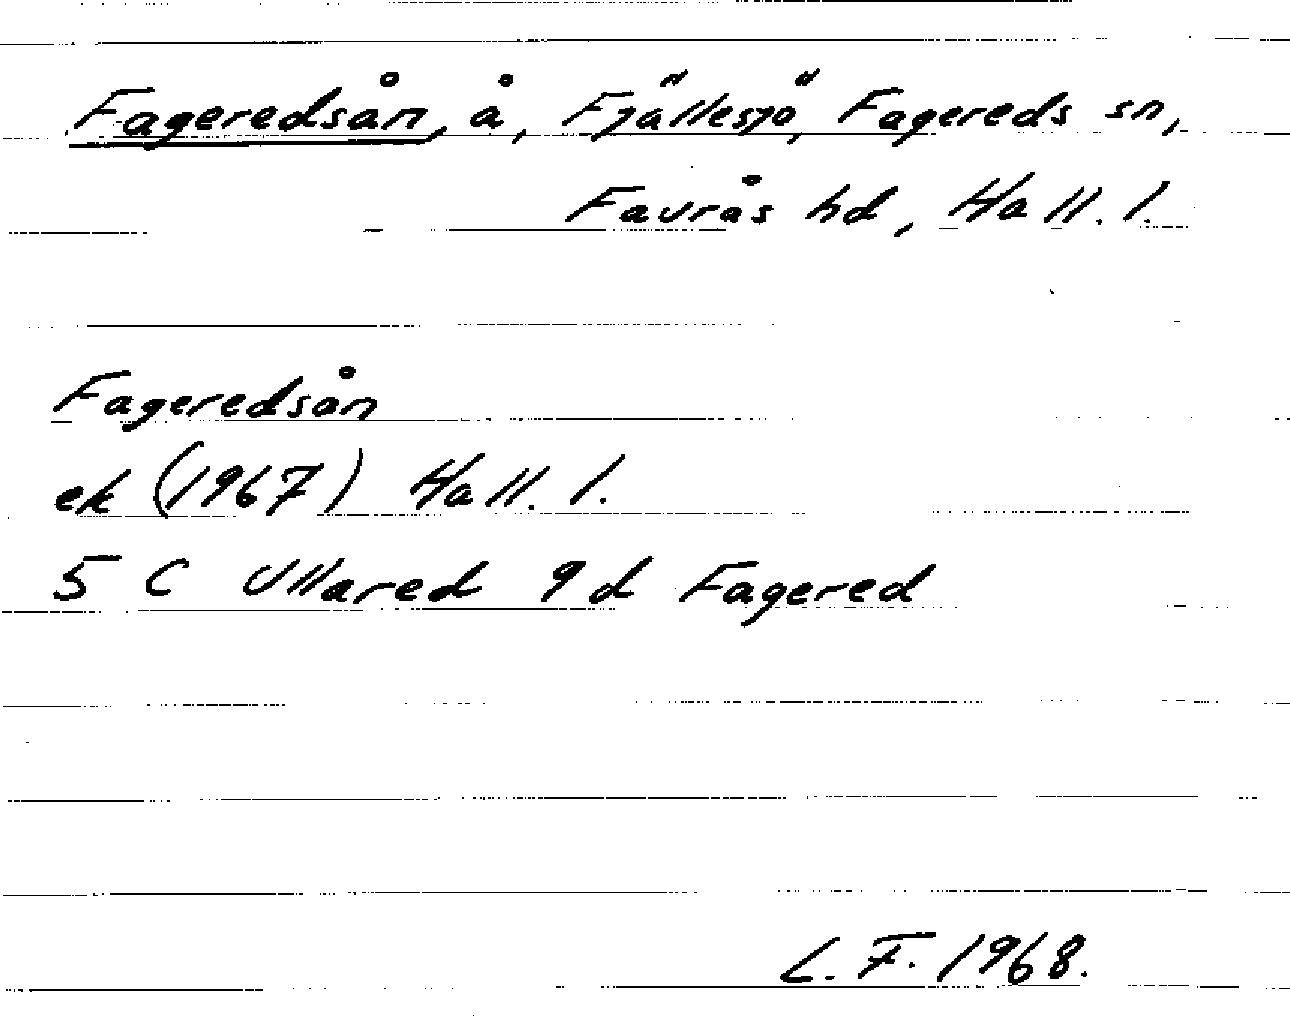 Fageredsån, å, Fjällesjö, Fagereds sn,
Faurås hd, Hall. l.
Fageredsån
ek (1967) Hall. l.
5 C Ullared 9d Fagered
L. F. 1968.